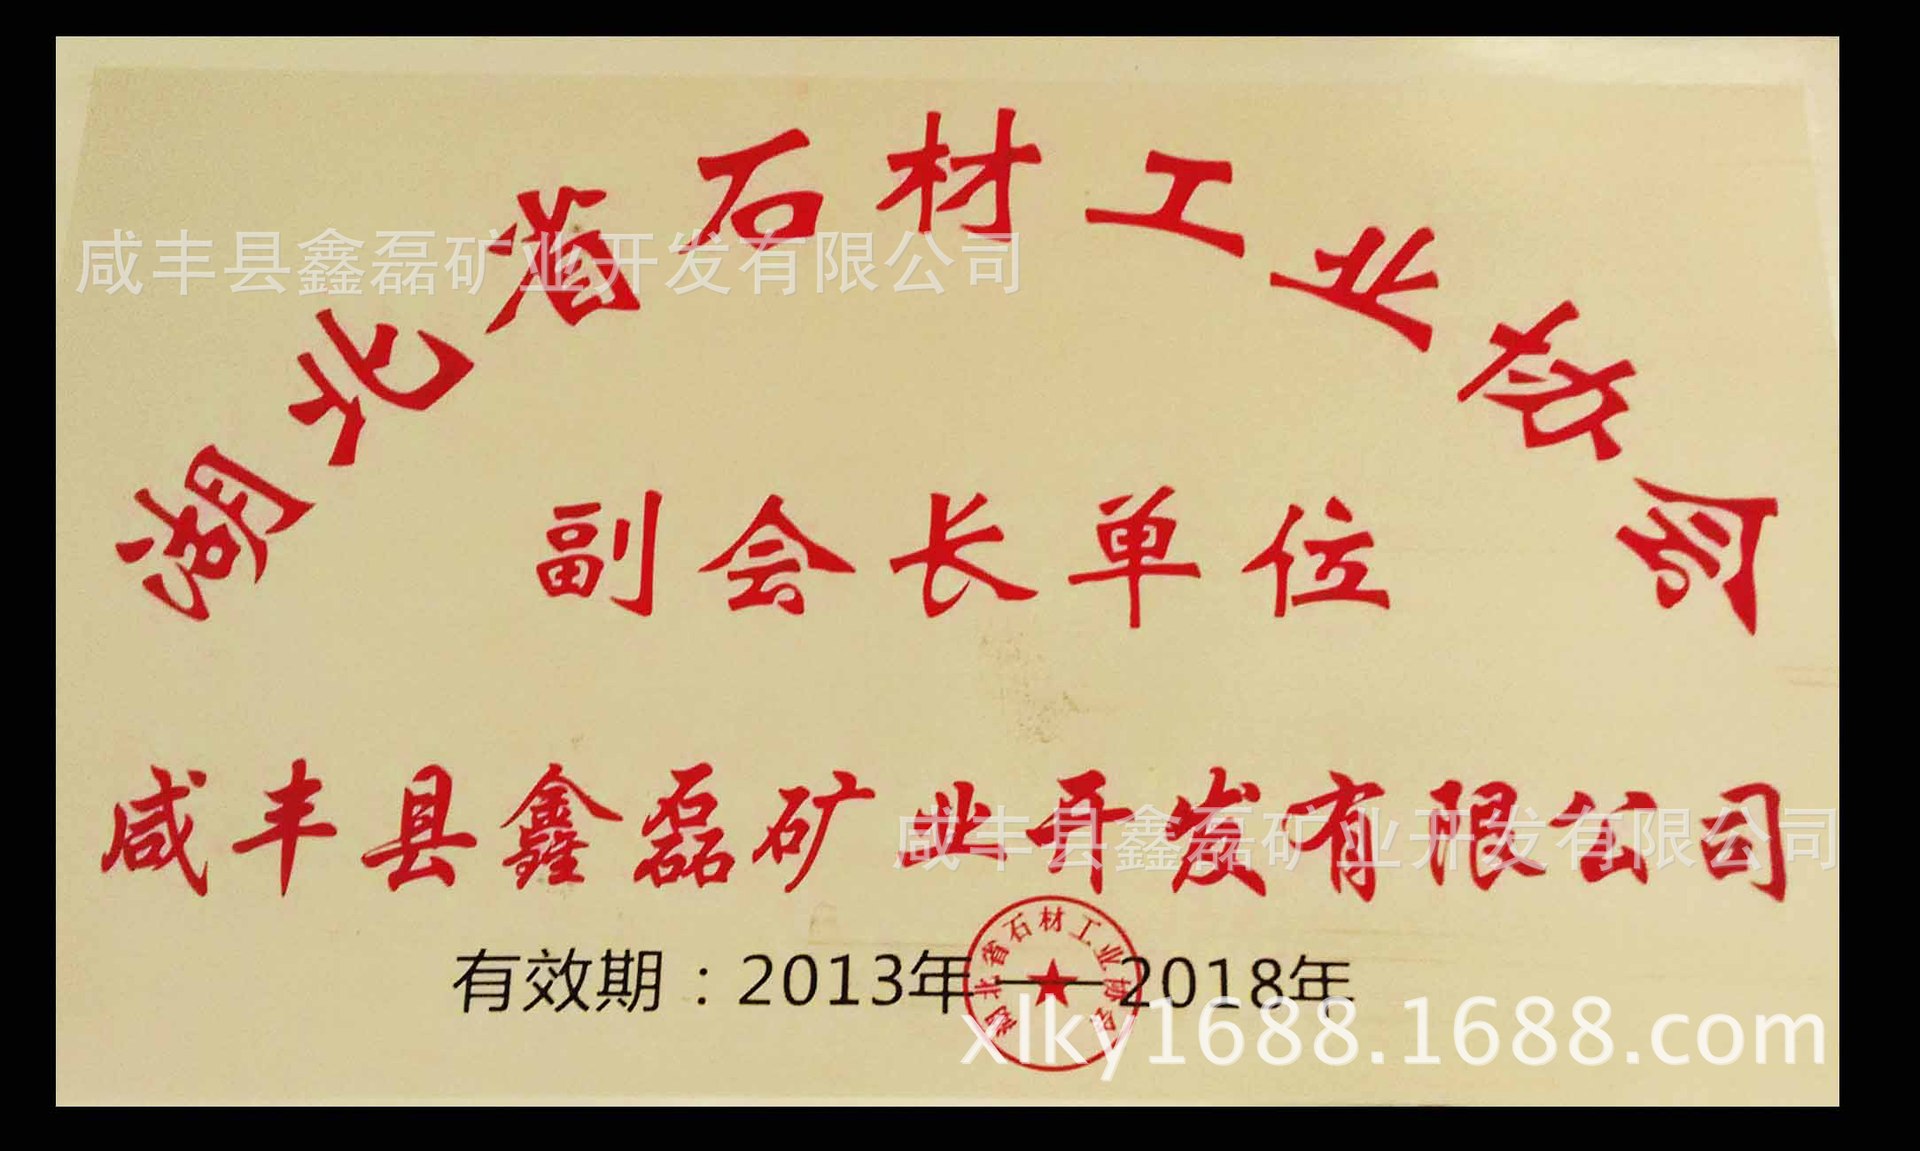 湖北省石材工业协会
咸丰县鑫磊矿业开发有限公司
副会长单位
咸丰县鑫磊矿业开发有限公司
咸丰县鑫磊矿业开发有限公司
湖北省石材工业协会
有效期：2013年——2018年
xlky1688.1688.com